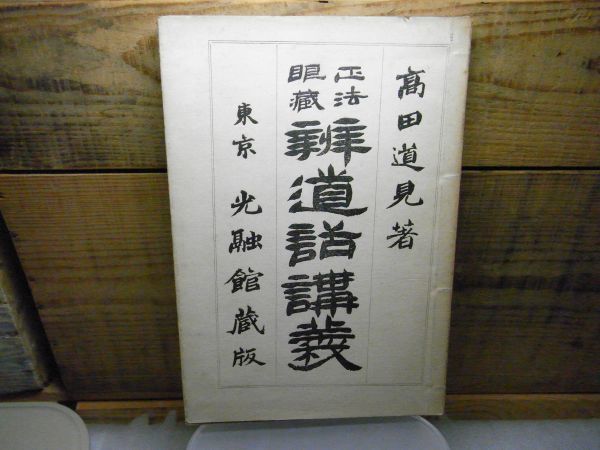 高田道見著
正法
眼藏
辨道話講義
東京 光融館蔵版